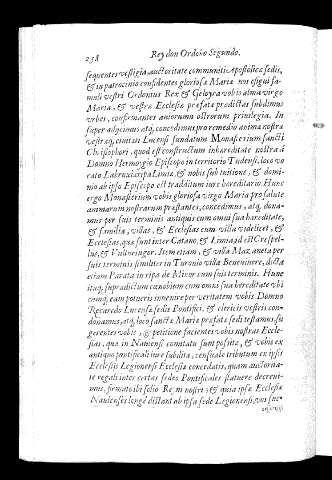 258 Rey don Ordoño Segundo.
sequentes vestigia, auctoritate communiti Apostolicæ sedis,
& in patrocinio confidentes gloriosæ Mariæ nos exigui fa-
muli vestri Ordonius Rex & Geloyra vobis almæ virgo
Maria, & vestræ Ecclesiæ præfatæ prædictas subdimus
vrbes, confirmantes auiorum nostrorum priuilegia. In
super adycimus atq, concedimus pro remedio animæ nostræ
vestræq, ciuitati Lucensi fundatum Monasterium sancti
Christophori, quod est constructum in hæreditate nostra à
Domno Hermogio Episcopo in territorio Tudensi, loco vo
cato Labruxia ripa Limia, & nobis sub tuitione, & domi-
nio ab ipso Episcopo est traditum iure hæreditario. Hunc
ergo Monasterium vobis gloriosa virgo Maria pro salute
animarum nostrarum præstantes, concedimus, atq, dona-
mus per suis terminis antiquis cum omni sua hæreditate,
& familia, villas, & Ecclesias cum villa videlicet, &
Ecclesias, quæ sunt inter Catam, & Limia, id est Crespel-
los, & Vulturingor. Item etiam, & villa Maxaneta per
suis terminis similiter in Turonio villa Beneuiuere, dicta
etiam Parata in ripa de Minor cum suis terminis. Hunc
itaq, supradictum cœnobium cum omni sua hæreditate vbi
cumq, eam potueris inuenire per veritatem vobis Domno
Recaredo Lucensæ sedis Pontifici, & clericis vestris con-
donamus, atq, loco sanctæ Mariæ præfatæ sedi testamus, su
gerentes vobis, & petitione facientes vobis nostras Eccle-
sias, quæ in Nauiensi comitatu sunt positæ, & vobis ex
antiquo pontificali iure subditæ, censuale tributum ex ipsis
Ecclesijs Legionensi Ecclesiæ concedatis, quam auctorita-
te regali inter certas sedes Pontificales statuere decreui-
mus, firmato ibi solio Regni nostri: & quia ipsæ Ecclesiæ
Nauienses longè distant ab ipsa sede Legionensi, vos suc-